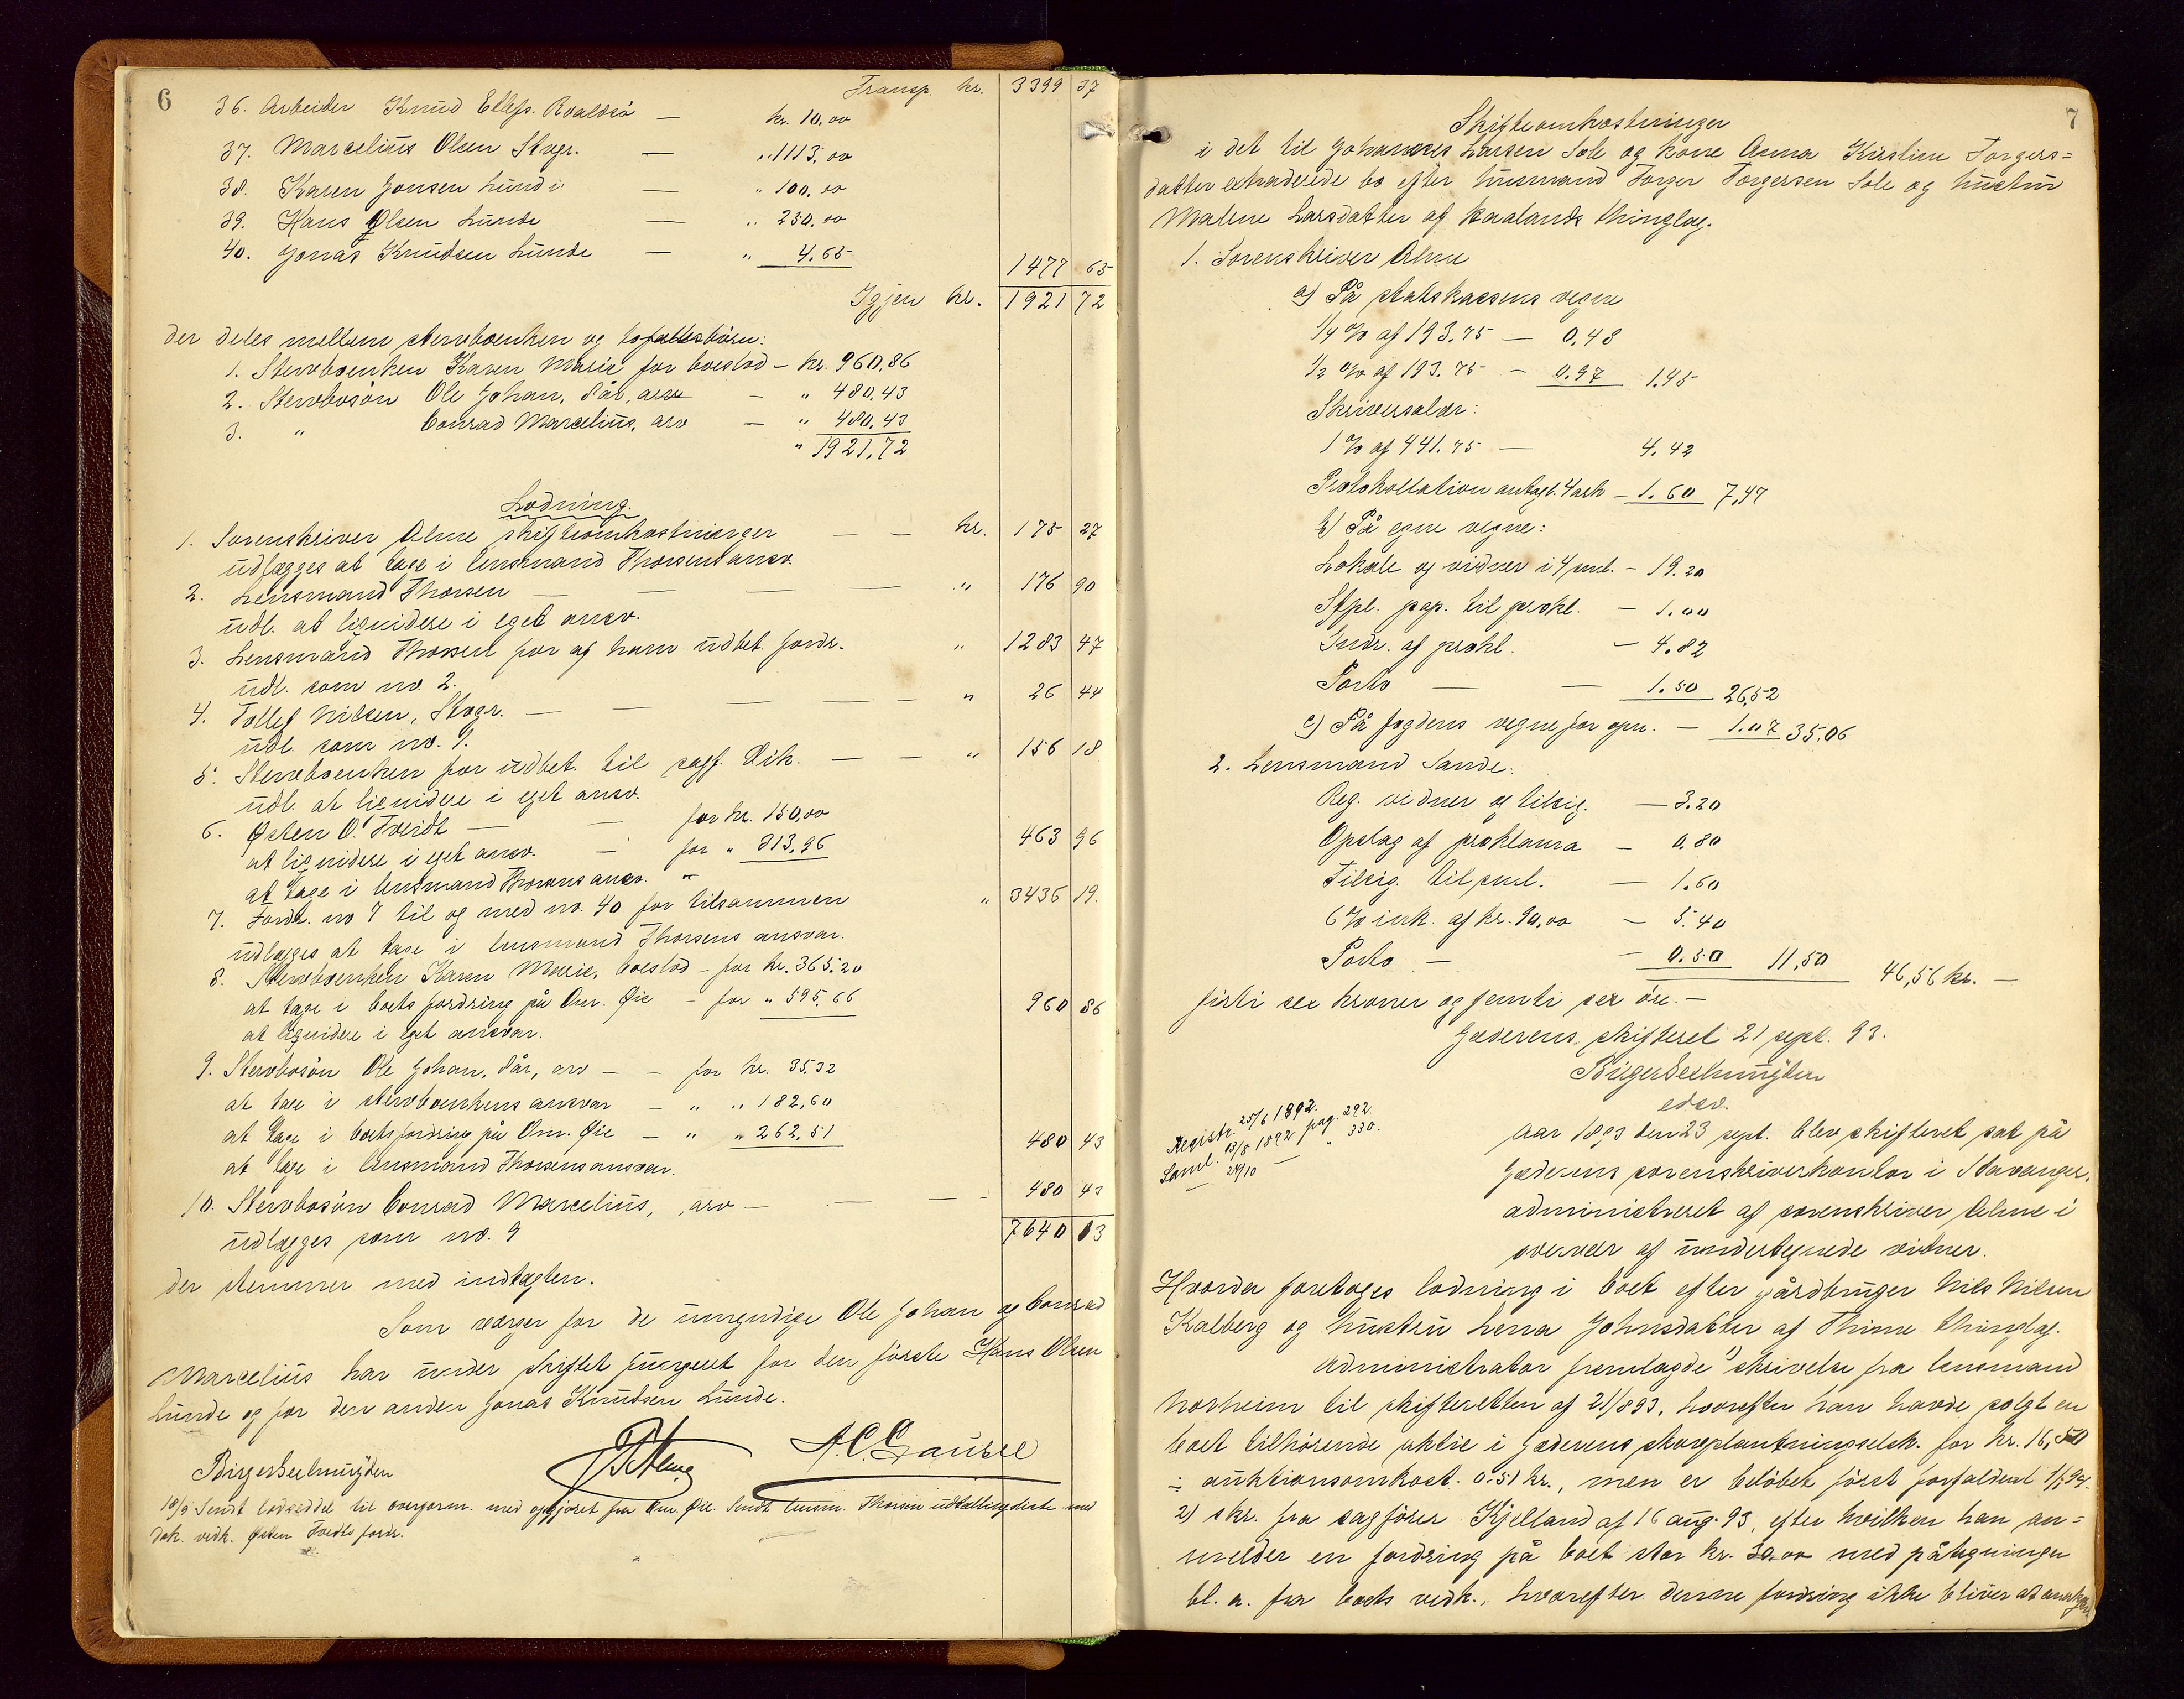 6
Transp. kr. 3399 37
36. Arbeider Knud Ellefs. Roaldsö — kr. 10,00
37. Marcelius Olsen Stvgr. — „ 1113,00
38. Karen Jonsen Lunde — „ 100,00
39. Hans Olsen Lunde — „ 250,00
40. Jonas Knudsen Lunde — „ 4.65
1477 65
Igjen kr. 1921 72
der deles mellem stervboenken og to fællesbörn:
1. Stervboenken Karen Marie for boeslod – kr. 960,86
2. Stervbosön Ole Johan, 8 år, arv — „ 480,43
3. „ Conrad Marcelius, arv — „ 480,43
„ 1921,72
Lodning.
1. Sorenskriver Olme skifteomkostninger — — kr. 175 27
udlægges at tage i lensmand Thorsens ansv.
2. Lensmand Thorsen — — — — „ 176 90
udl. at liquidere i eget ansv.
3. Lensmand Thorsen for af ham udbet. fordr. „ 1283 47
udl. som no 2.
4. Tollef Nilsen, Stvgr. — — — — „ 26 44
udl. som no. 1.
5. Stervboenken for udbet. til sagf. Eik. — — „ 156 18
udl. at liquidere i eget ansv.
6. Östen O. Tveidt — — for kr. 150,00
at liquidere i eget ansv. — for „ 313,96 463 96
at tage i lensmand Thorsens ansv. „
7. Fordr. no 7 til og med no. 40 for tilsammen „ 3436 19.
udlægges at tage i lensmand Thorsens ansvar.
8. Stervboenken Karen Marie, boeslod – for kr. 365.20
at tage i boets fordring på Om. Öie – for „ 595,66 960 86
at liquidere i eget ansvar.
9. Stervbosön Ole Johan, 8 år, arv — – for kr. 35.32
at tage i stervboenkens ansvar – „ „ 182,60
at tage i boets fordring på Om. Öie – „ „ 262,51 480 43
at tage i lensmand Thorsens ansvar.
10. Stervbosön Conrad Marcelius, arv — — — 480 43
udlægges som no. 9 7640 63
der stemmer med indtægten.
Som værger for de umyndige Ole Johan og Conrad
Marcelius har under skiftet fungeret for den förste Hans Olsen
Lunde og for den anden Jonas Knudsen Lunde.
A. C. Gausel
18/9 Sendt lodseddel til overform. med opgjöret fra Om. Öie. Sendt lensm. Thorsen udtællingsliste med
dok. vedk. Östen Tvedts fordr.
7
Skifteomkostninger
i det til Johannes Larsen Sole og kone Anna Kirstine Torgers=
datter extraderede bo efter husmand Torger Torgersen Sole og hustru
Malene Larsdatter af Haalands thinglag.
1. Sorenskriver Olme
a) På statskassens vegne
1/4 % af 193.75 — 0,48
1/2 % af 193.75 – 0.97 1.45
Skriversalær:
1 % af 441.75 — 4.42
Protokollation antagl. 4 ark – 1.60 7,47
b) På egne vegne:
Lokale og vidner i 4 saml. – 19.20
Stpl. pap. til prokl. – 1.00
Indr. af prokl. – 4.82
Porto — — 1.50 26,52
c) På fogdens vegne for opn. – 1.07 35,06
2. Lensmand Sande:
Reg. vidner og tilsig. — 3.20
Opslag af proklama – 0.80
Tilsig. til saml. — 1.60
6 % ink. af kr. 90,00 – 5.40
Porto – – 0.50 11,50 46,56 kr. —
firti sex kroner og femti sex öre. —
Jæderens skifteret 21 sept. 93.
edsv.
Registr. 25/6 1892.
Saml. 13/8 1892 pag. 292.
— 24/10 — „ 330.
Aar 1893 den 23 sept. blev skifteret sat på
Jæderens sorenskriverkontor i Stavanger,
administreret af sorenskriver Olme i
overvær af undertegnede vidner.
Hvorda foretoges lodning i boet efter gårdbruger Nils Nilsen
Kalberg og hustru Lena Johnsdatter af Thime thinglag.
Administrator fremlagde 1) skrivelse fra lensmand
Norheim til skifteretten af 21/8 93, hvorefter han havde solgt en
boet tilhörende aktie i Jæderens skovplantningselsk. for kr. 16,50
÷ auktionsomkost. 0.51 kr., men er belöbet först forfaldent 1/1 94.
2) skr. fra sagförer Kjelland af 16 aug. 93, efter hvilken han an=
melder en fordring på boet stor kr. 30.00 med påtegninger
bl. a. fra boets vedk., hvorefter denne fordring ikke bliver at anerkjen